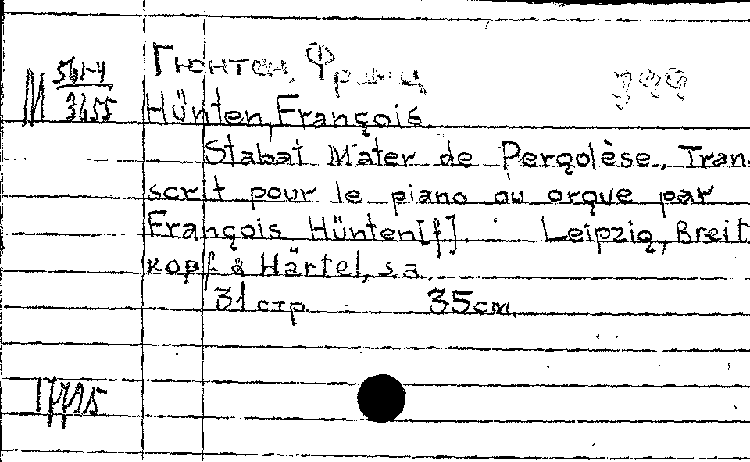 Гюнтен, Франц
М 561-4
3655
Hünten, François
Stabat Mater de Pergolèse, Tran-
scrit pour le piano ou orgue par
François Hünten[f]. Leipzig, Breit
kopf & Härtel, s.a.
31 стр. 35 см.